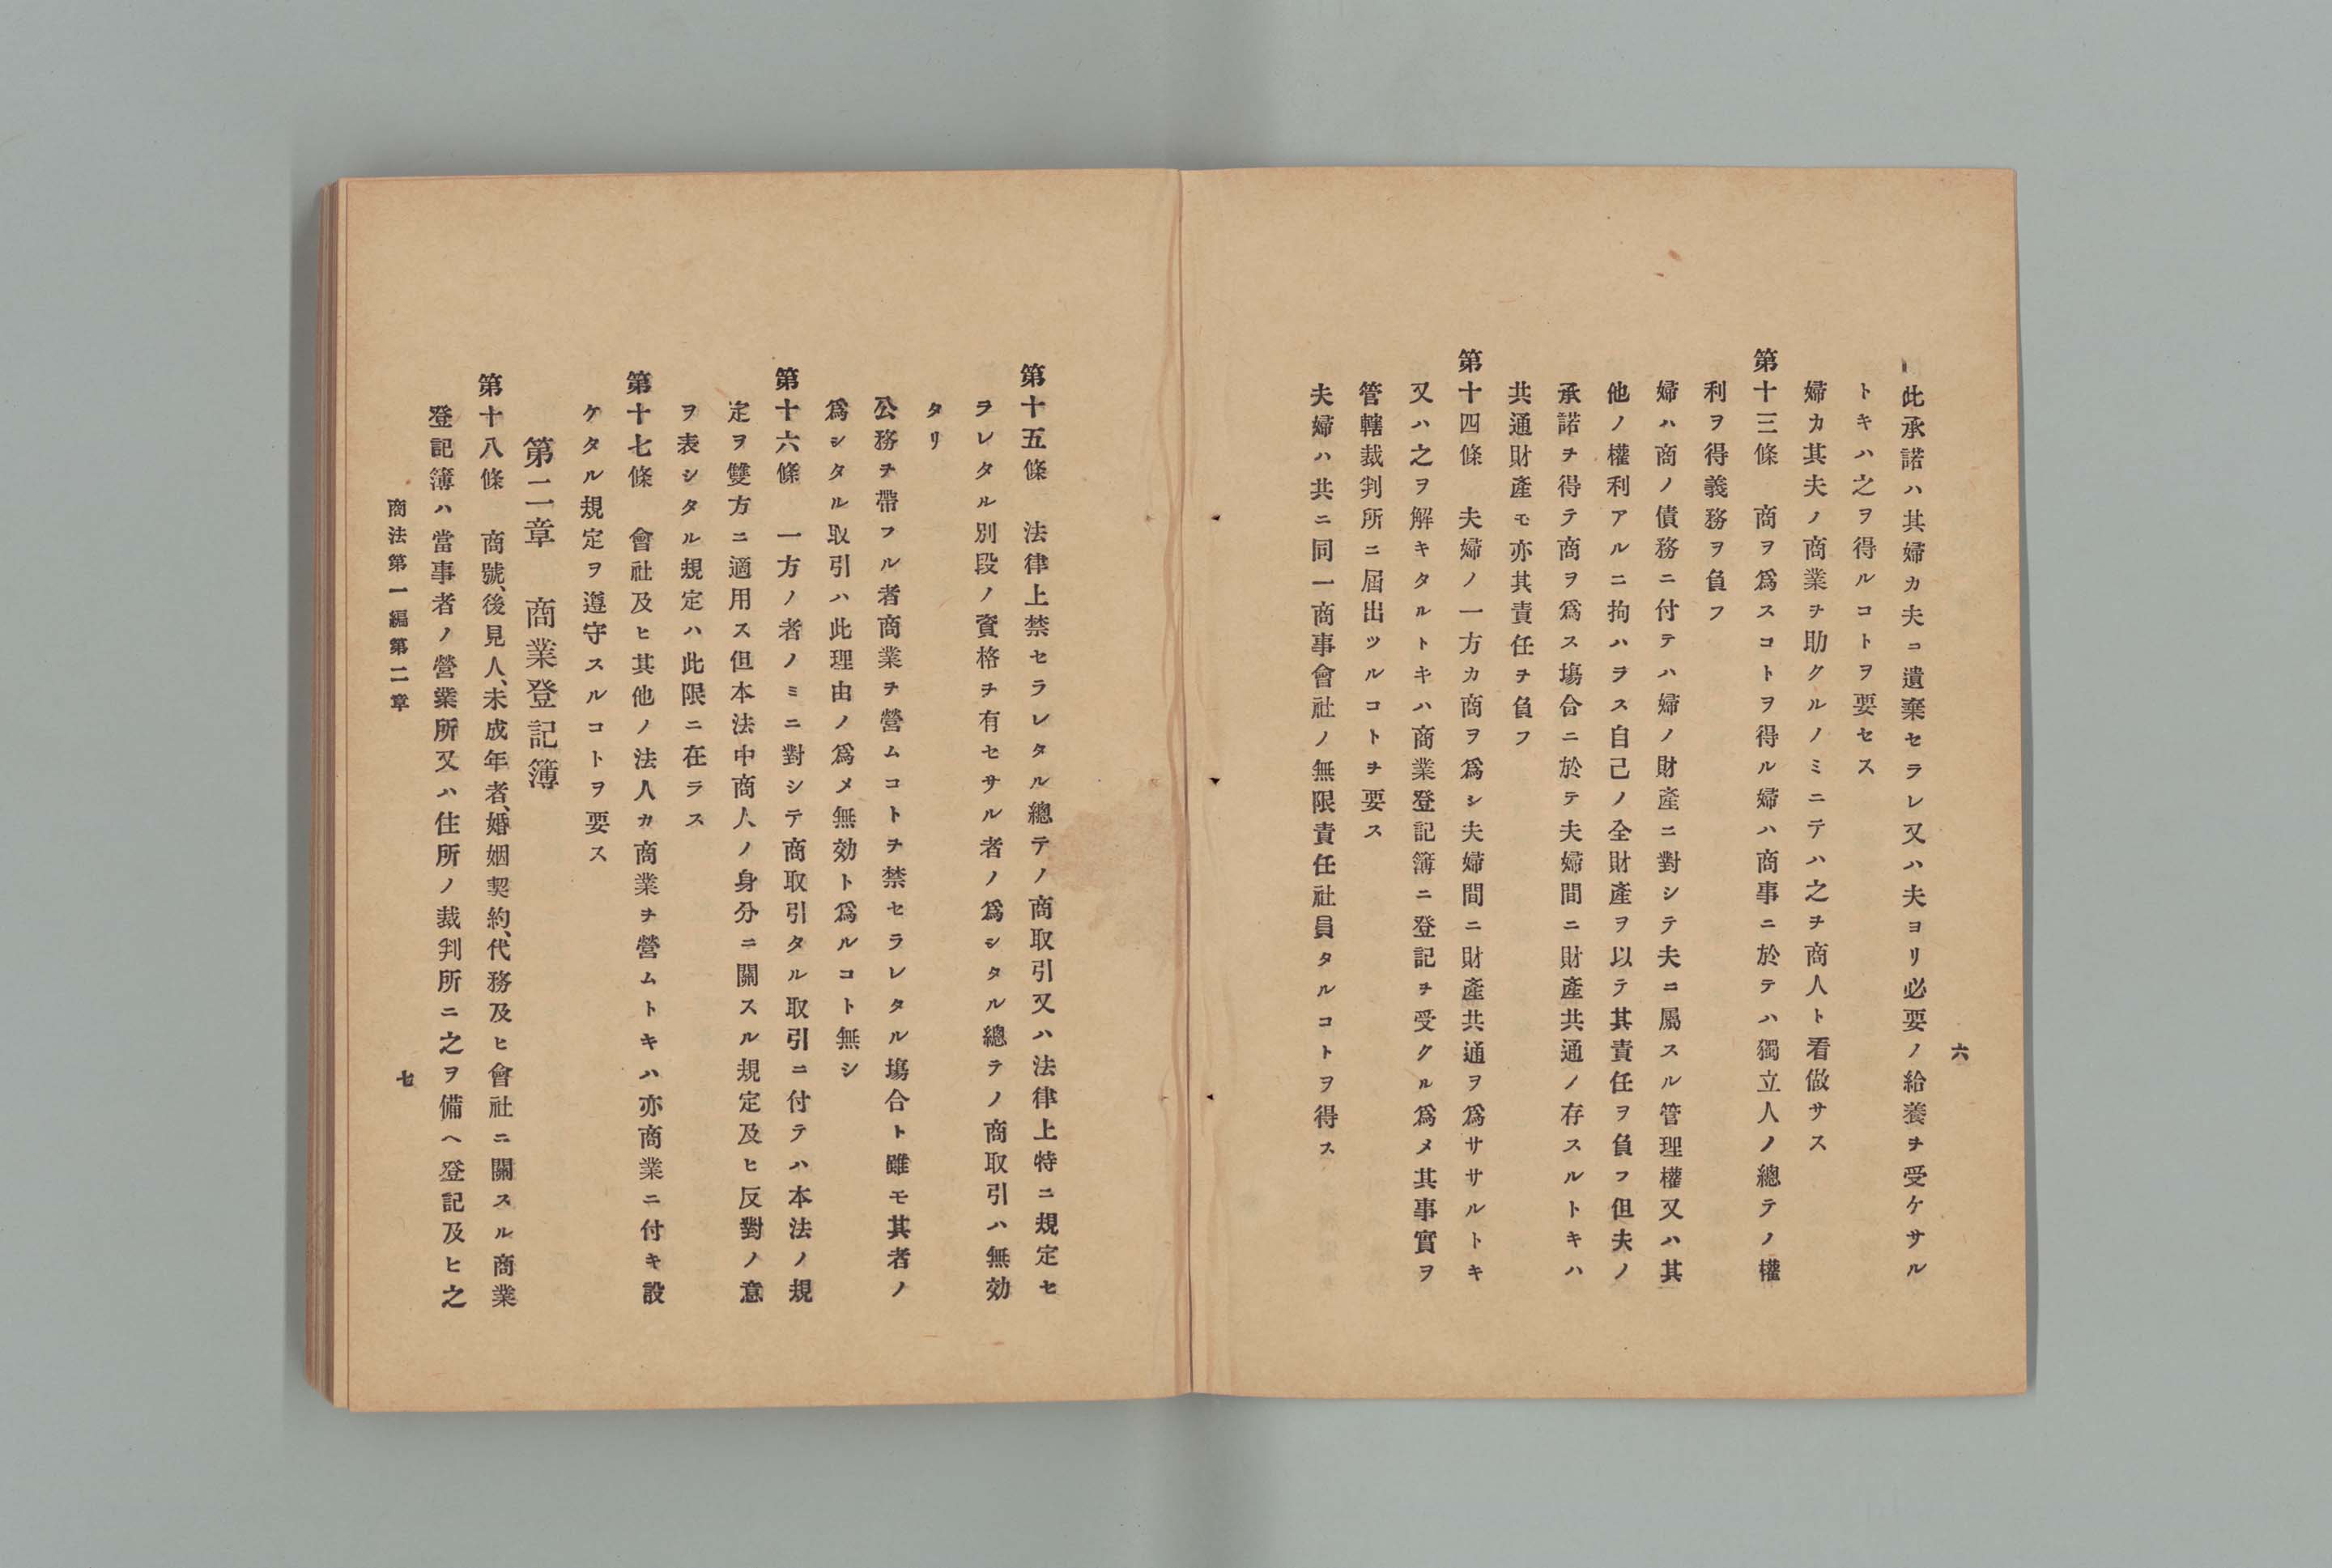 六
此承諾ハ其婦カ夫ニ遺棄セラレ又ハ夫ヨリ必要ノ給養ヲ受ケサル
トキハ之ヲ得ルコトヲ要セス
婦カ其夫ノ商業ヲ助クルノミニテハ之ヲ商人ト看做サス
第十三條　商ヲ爲スコトヲ得ル婦ハ商事ニ於テハ獨立人ノ總テノ權
利ヲ得義務ヲ負フ
婦ハ商ノ債務ニ付テハ婦ノ財產ニ對シテ夫ニ屬スル管理權又ハ其
他ノ權利アルニ拘ハラス自己ノ全財產ヲ以テ其責任ヲ負フ但夫ノ
承諾ヲ得テ商ヲ爲ス塲合ニ於テ夫婦間ニ財產共通ノ存スルトキハ
共通財產モ亦其責任ヲ負フ
第十四條　夫婦ノ一方カ商ヲ爲シ夫婦間ニ財產共通ヲ爲ササルトキ
又ハ之ヲ解キタルトキハ商業登記簿ニ登記ヲ受クル爲メ其事實ヲ
管轄裁判所ニ屆出ツルコトヲ要ス
夫婦ハ共ニ同一商事會社ノ無限責任社員タルコトヲ得ス
第十五條　法律上禁セラレタル總テノ商取引又ハ法律上特ニ規定セ
ラレタル別段ノ資格ヲ有セサル者ノ爲シタル總テノ商取引ハ無効
タリ
公務ヲ帶フル者商業ヲ營ムコトヲ禁セラレタル塲合ト雖モ其者ノ
爲シタル取引ハ此理由ノ爲メ無効ト爲ルコト無シ
第十六條　一方ノ者ノミニ對シテ商取引タル取引ニ付テハ本法ノ規
定ヲ雙方ニ適用ス但本法中商人ノ身分ニ關スル規定及ヒ反對ノ意
ヲ表シタル規定ハ此限ニ在ラス
第十七條　會社及ヒ其他ノ法人カ商業ヲ營ムトキハ亦商業ニ付キ設
ケタル規定ヲ遵守スルコトヲ要ス
第二章　商業登記簿
第十八條　商號、後見人、未成年者、婚姻契約、代務及ヒ會社ニ關スル商業
登記簿ハ當事者ノ營業所又ハ住所ノ裁判所ニ之ヲ備ヘ登記及ヒ之
商法第一編第二章
七